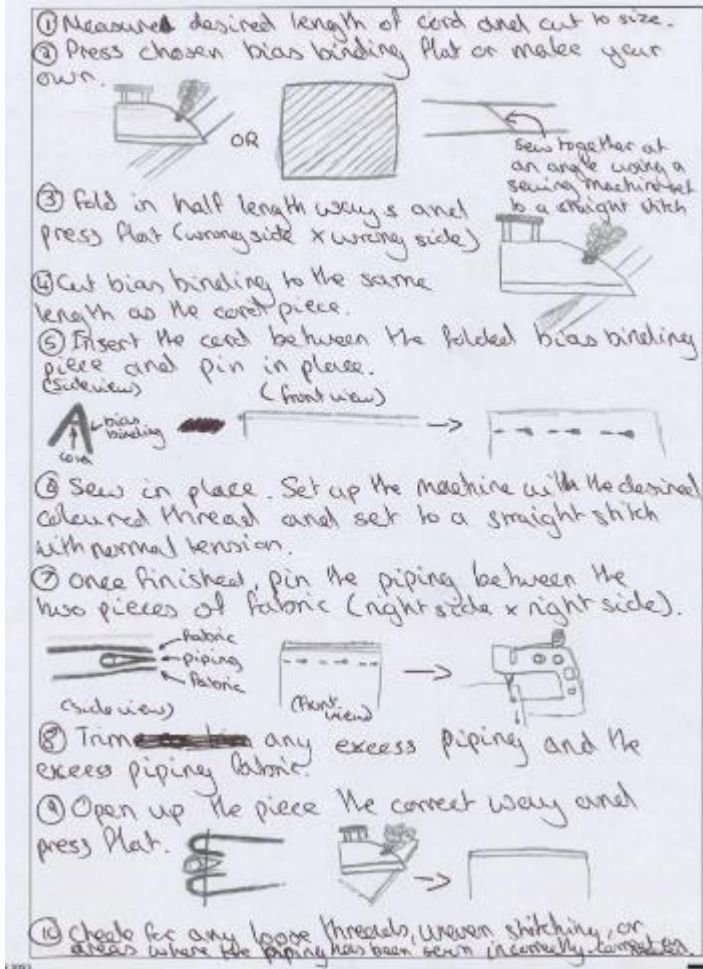 ① Measured desired length of cord and cut to size.
② Press chosen bias binding flat or make your
own.
OR
sew together at
an angle using a
sewing machine set
to a straight stitch
③ Fold in half length ways and
press flat (wrong side x wrong side)
④ Cut bias binding to the same
length as the cord piece.
⑤ Insert the cord between the folded bias binding
piece and pin in place.
(side view) (front view)
bias
binding
cord
⑥ Sew in place. Set up the machine with the desired
coloured thread and set to a straight stitch
with normal tension.
⑦ Once finished, pin the piping between the
two pieces of fabric (right side x right side).
fabric
piping
fabric
(side view) (front
view)
⑧ Trim any excess piping and the
excess piping fabric.
⑨ Open up the piece the correct way and
press flat.
⑩ Check for any loose threads, uneven stitching, or
areas where the piping has been sewn incorrectly.